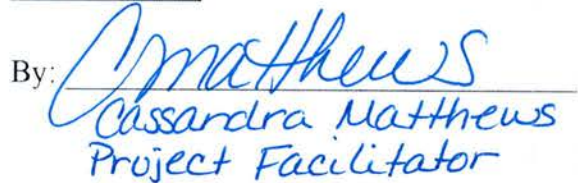 By: CMatthews
Cassandra Matthews
Project Facilitator